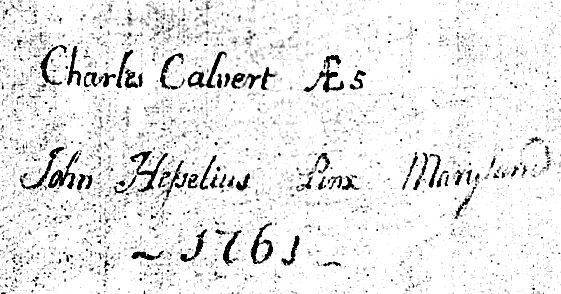 Charles Calvert Æ 5
John Heſselius Pinx Maryland
~ 1761 ~